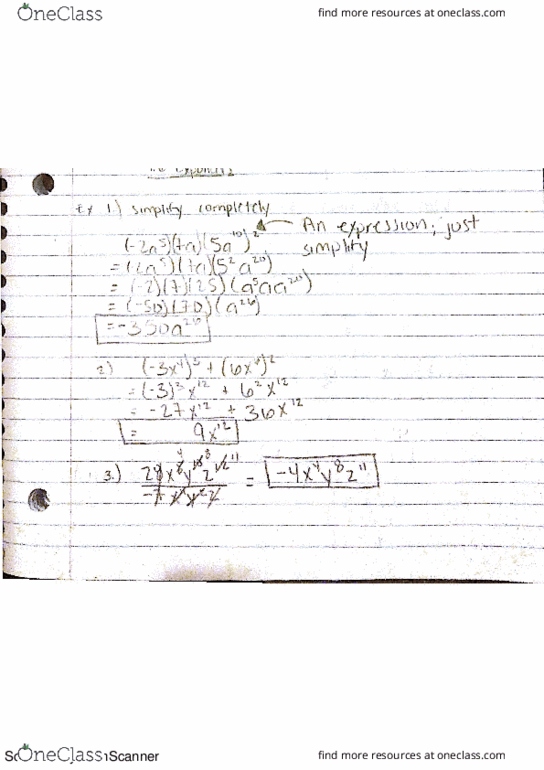 OneClass
find more resources at oneclass.com
Ex 1.) simplify completely
(-2a⁵)(7a)(5a¹⁰)²
An expression, just
simplify
= (-2a⁵)(7a)(5²a²⁰)
= (-2)(7)(25)(a⁵aa²⁰)
= (-50)(7)(a²⁶)
= -350a²⁶
2.) (-3x⁴)³ + (6x⁶)²
= (-3)³x¹² + 6²x¹²
= -27x¹² + 36x¹²
= 9x¹²
3.) 28x⁸y¹⁰z¹² / -7x⁴y²z = -4x⁴y⁸z¹¹
OneClass
Scanner
find more resources at oneclass.com